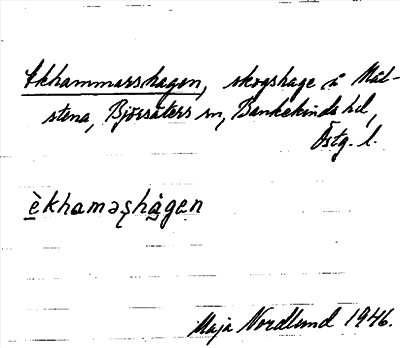 Ekhammarshagen, skogshage å Mål-
stena, Björsäters sn, Bankekinds hd,
Östg. l.
èkhamaʂhàgen
Maja Nordlund 1946.